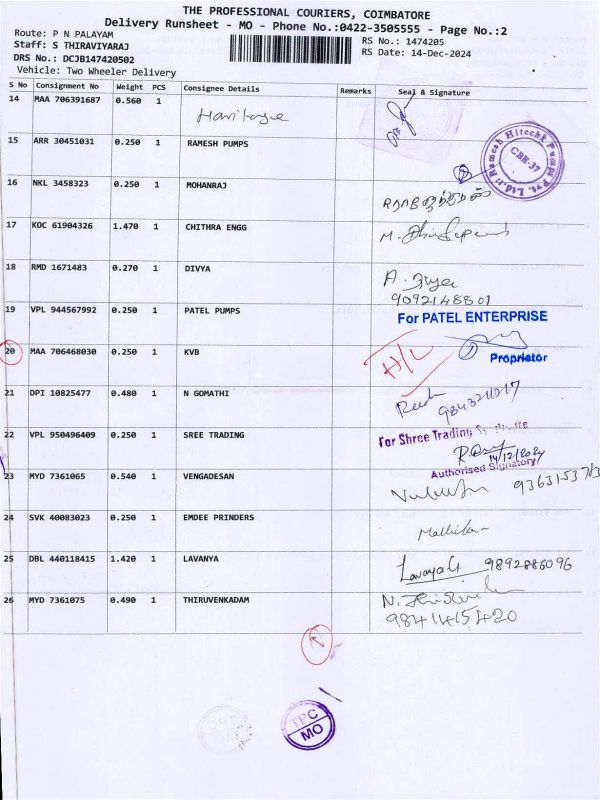 THE PROFESSIONAL COURIERS, COIMBATORE
Delivery Runsheet - MO - Phone No.:0422-3505555 - Page No.:2
Route: P N PALAYAM
Staff: S THIRAVIYARAJ
DRS No.: DCJB147420502
Vehicle: Two Wheeler Delivery
RS No.: 1474205
RS Date: 14-Dec-2024
S No Consignment No Weight PCS Consignee Details Remarks Seal & Signature
14 MAA 706391687 0.560 1
15 ARR 30451031 0.250 1 RAMESH PUMPS Ramesh Hitechh Pumps Pvt. Ltd. CBE-37
16 NKL 3458323 0.250 1 MOHANRAJ
17 KOC 61904326 1.470 1 CHITHRA ENGG
18 RMD 1671483 0.270 1 DIVYA
9092148801
19 VPL 944567992 0.250 1 PATEL PUMPS For PATEL ENTERPRISE
20 MAA 706468030 0.250 1 KVB H/L Proprietor
21 DPI 10825477 0.480 1 N GOMATHI
22 VPL 950496409 0.250 1 SREE TRADING For Shree Trading
14/12/2024
Authorised Signatory
23 MYD 7361065 0.540 1 VENGADESAN
24 SVK 40083023 0.250 1 EMDEE PRINDERS
25 DBL 440118415 1.420 1 LAVANYA 9892886096
26 MYD 7361075 0.490 1 THIRUVENKADAM
9841415420
TPC
MO